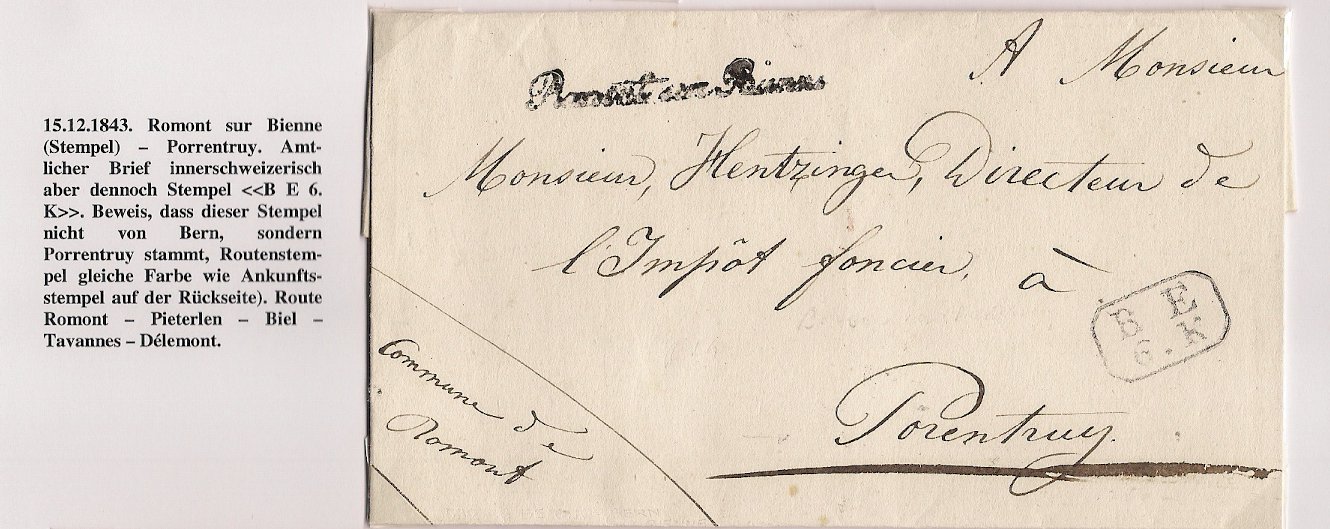 15.12.1843. Romont sur Bienne
(Stempel) – Porrentruy. Amt-
licher Brief innerschweizerisch
aber dennoch Stempel <<B E 6.
K>>. Beweis, dass dieser Stempel
nicht von Bern, sondern
Porrentruy stammt, Routenstem-
pel gleiche Farbe wie Ankunfts-
stempel auf der Rückseite). Route
Romont – Pieterlen – Biel –
Tavannes – Délemont.
Romont sur Bienne
A Monsieur
Monsieur, Hentzinger, Directeur de
l'Impôt foncier, à
B E
6. K
Porentruy.
Commune de
Romont